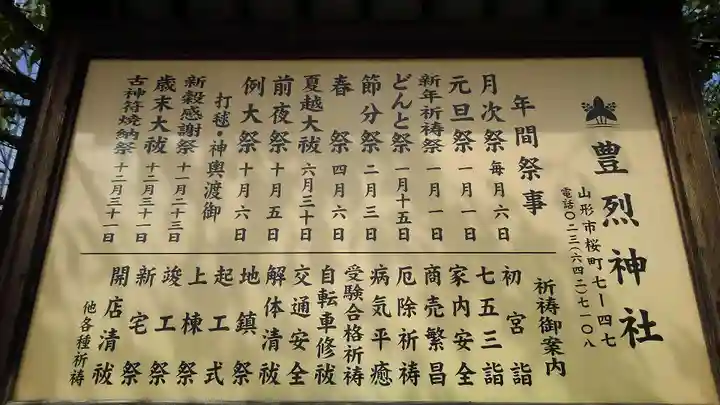 豊烈神社
山形市桜町七ー四七
電話〇二三(六四二)七一〇八
年間祭事
月次祭 毎月六日
元旦祭 一月一日
新年祈祷祭 一月一日
どんと祭 一月十五日
節分祭 二月三日
春祭 四月六日
夏越大祓 六月三十日
前夜祭 十月五日
例大祭 十月六日
打毬・神輿渡御
新穀感謝祭 十一月二十三日
歳末大祓 十二月三十一日
古神符焼納祭 十二月三十一日
祈祷御案内
初宮詣
七五三詣
家内安全
商売繁昌
厄除祈祷
病気平癒
受験合格祈祷
自転車修祓
交通安全
解体清祓
地鎮祭
起工式
上棟祭
竣工祭
新宅祭
開店清祓
他各種祈祷